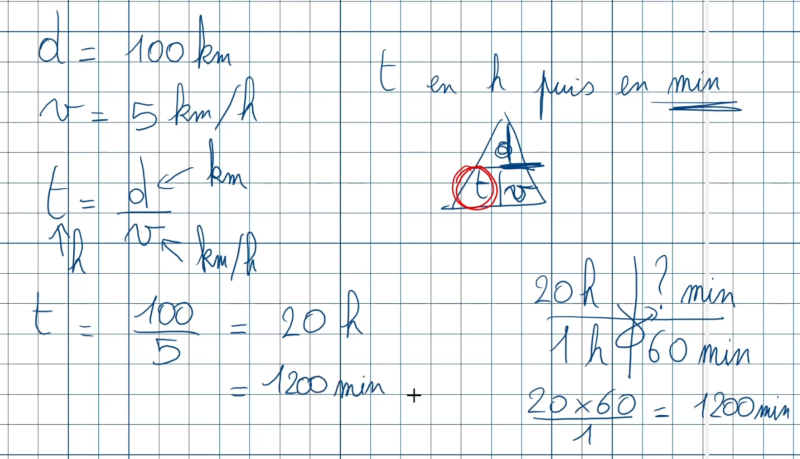 d = 100 km
t en h puis en min
v = 5 km/h
d
t v
t = d/v
km
h
km/h
t = 100/5 = 20 h
= 1200 min
20 h ? min
1 h 60 min
20 × 60 / 1 = 1200 min